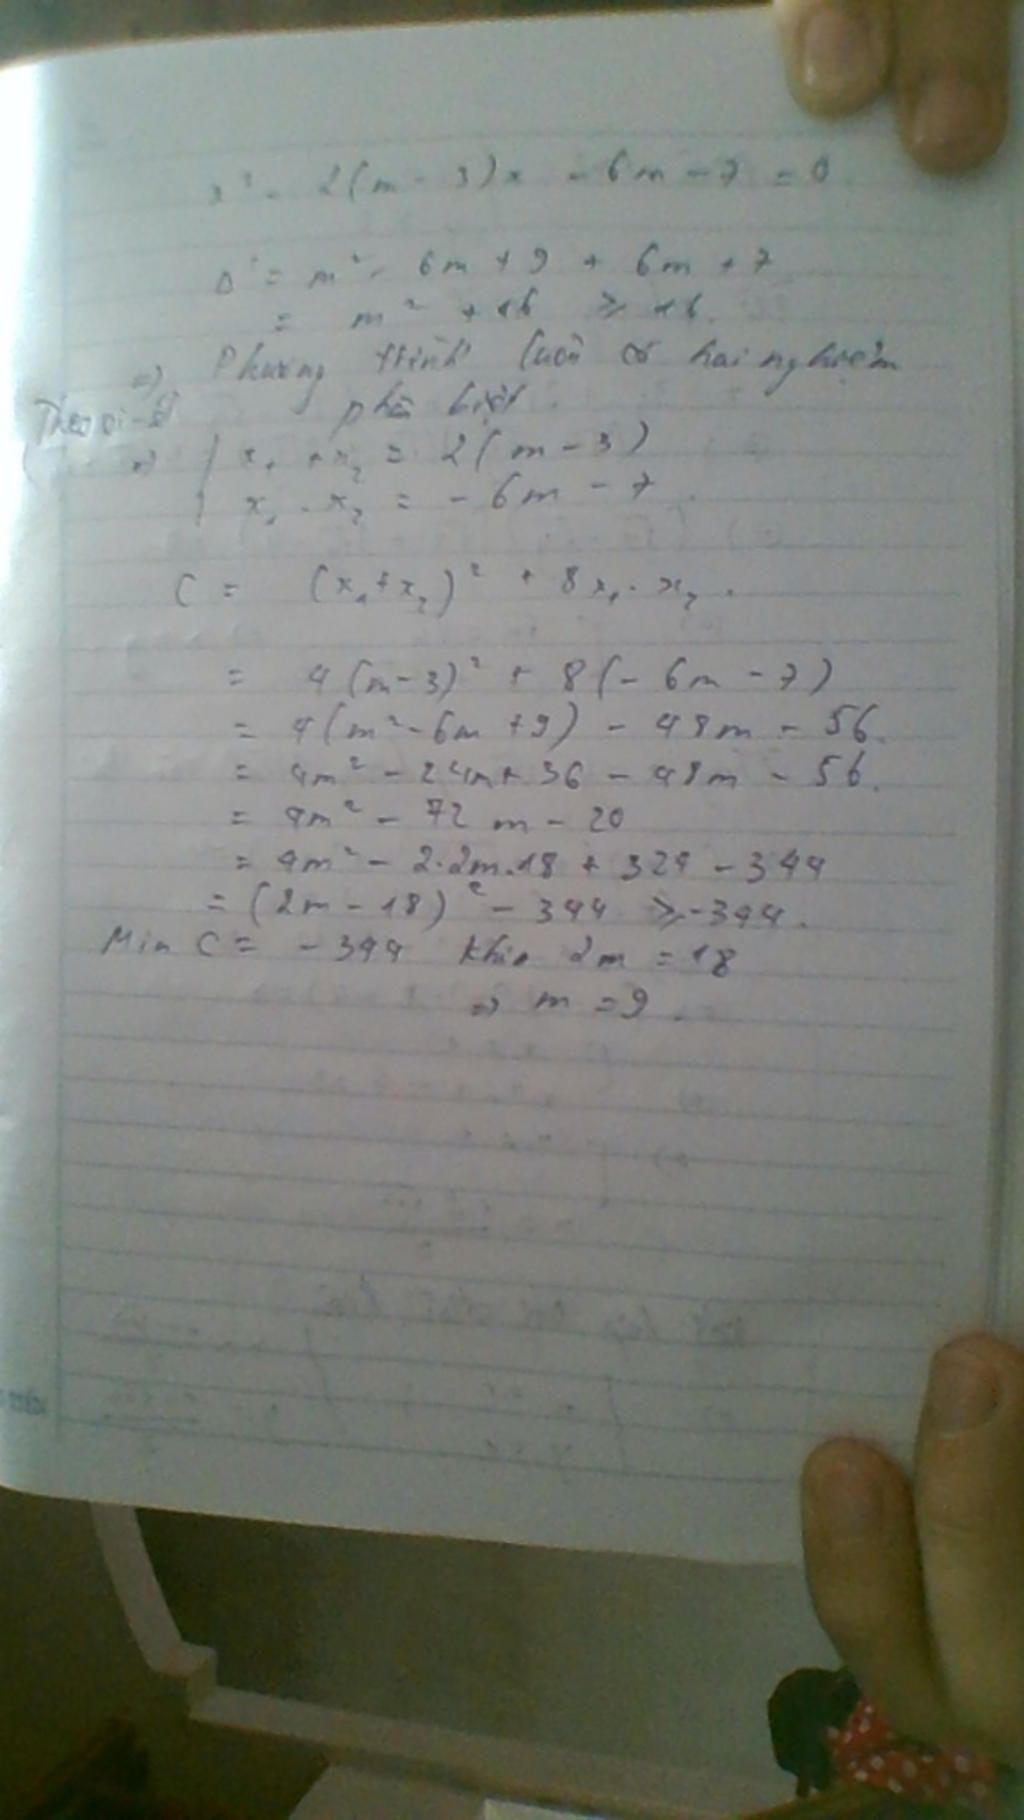 x² - 2(m - 3)x - 6m - 7 = 0
Δ' = m² - 6m + 9 + 6m + 7
= m² + 16 ≥ 16.
=> Phương trình luôn có hai nghiệm
phân biệt.
Theo vi-ét
=> { x₁ + x₂ = 2(m - 3)
x₁ . x₂ = - 6m - 7.
C = (x₁ + x₂)² + 8x₁ . x₂.
= 4(m - 3)² + 8(- 6m - 7)
= 4(m² - 6m + 9) - 48m - 56.
= 4m² - 24m + 36 - 48m - 56.
= 4m² - 72m - 20
= 4m² - 2.2m.18 + 324 - 344
= (2m - 18)² - 344 ≥ -344.
Min C = - 344 khi 2m = 18
=> m = 9.